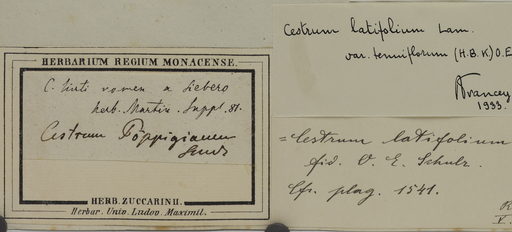 HERBARIUM REGIUM MONACENSE.
C. tinti nomen a Siebero
herb. Martin. Suppl. 81.
Cestrum Pöppigianum
Sendt
HERB. ZUCCARINII.
Herbar. Univ. Ludov. Maximil.
Cestrum latifolium Lam.
var. tenuiflorum (H.B.K) O.E
Francey
1933.
=Cestrum latifolium
fid. O. E. Schulz.
Cfr. plag. 1541.
R
V.